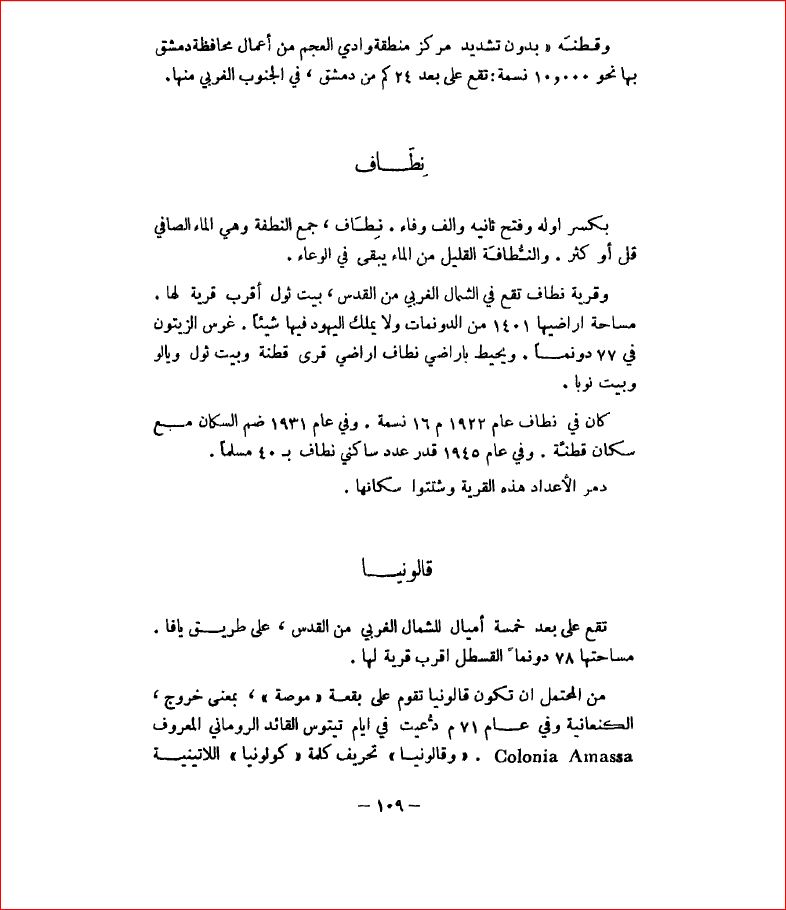 وقطنَه « بدون تشديد مركز منطقة وادي العجم من أعمال محافظة دمشق
بها نحو ١٠,٠٠٠ نسمة: تقع على بعد ٢٤ كم من دمشق ، في الجنوب الغربي منها.
نِطَّـــاف
بكسر اوله وفتح ثانيه والف وفاء . نِطَاف ، جمع النطفة وهي الماء الصافي
قل أو كثر . والنُّطافَة القليل من الماء يبقى في الوعاء .
وقرية نطاف تقع في الشمال الغربي من القدس ، بيت ثول أقرب قرية لها .
مساحة اراضيها ١٤٠١ من الدونمات ولا يملك اليهود فيها شيئاً . غرس الزيتون
في ٧٧ دونمـــاً . ويحيط باراضي نطاف اراضي قرى قطنة وبيت ثول ويالو
وبيت نوبا .
كان في نطاف عام ١٩٢٢ م ١٦ نسمة . وفي عام ١٩٣١ ضم السكان مـــع
سكان قطنّة . وفي عام ١٩٤٥ قدر عدد ساكني نطاف بـ ٤٠ مسلماً .
دمر الأعداد هذه القرية وشتتوا سكانها .
قالونيـــا
تقع على بعد خمسة أميال للشمال الغربي من القدس ، على طريـــق يافا .
مساحتها ٧٨ دونماً القسطل اقرب قرية لها .
من المحتمل ان تكون قالونيا تقوم على بقعة « موصة » ، بمعنى خروج ،
الكنعانية وفي عـــام ٧١ م دُعيت في ايام تيتوس القائد الروماني المعروف
Colonia Amassa . « وقالونيـا » تحريف كلمة « كولونيا » اللاتينيـــة
– ١٠٩ –